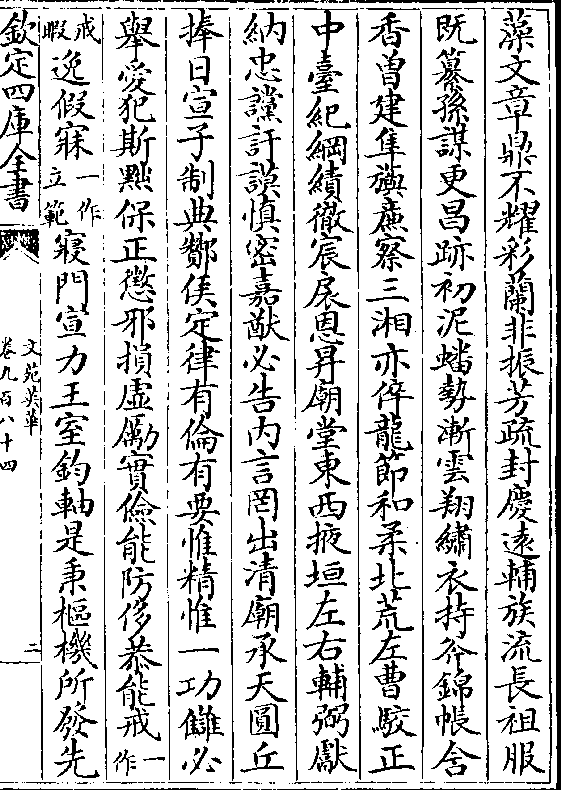 藻文章鼎不耀彩蘭非振芳疏封慶遠輔族流長祖服
既纂孫謀更昌跡初泥蟠勢漸雲翔繡衣持斧錦帳含
香曽建隼旟廉察三湘亦倅龍節和柔北荒左曹駮正
中臺紀綱績徹宸扆恩昇廟堂東西掖垣左右輔弼獻
納忠讜訏謨慎密嘉猷必告内言罔出清廟承天圓丘
捧日宣子制典酇侯定律有倫有要惟精惟一功讎必
舉愛犯斯㸃保正懲邪損虛勵實儉能防侈恭能戒一作
戒暇逸假寐一作立範寢門宣力王室鈞軸是秉樞機所發先
欽定四庫全書
文苑英華
卷九百八十四
三